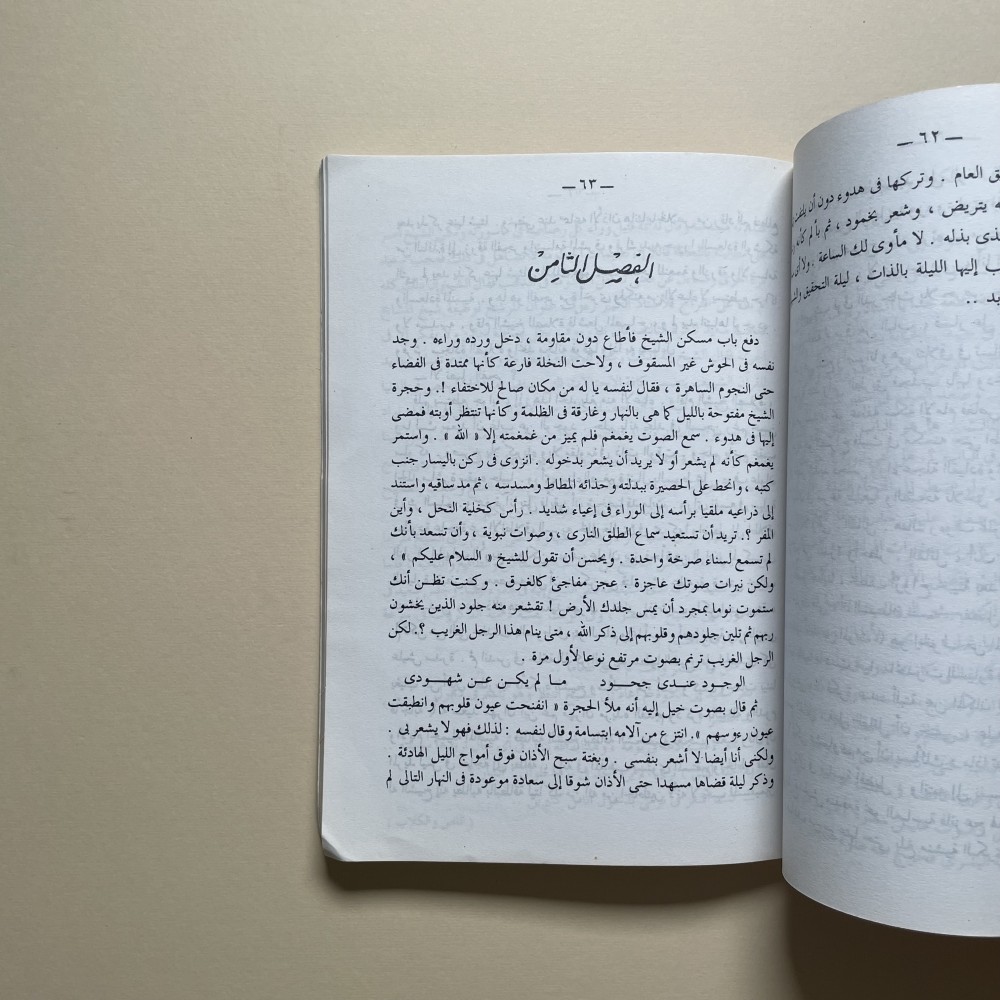 — ٦٢ —
ق العام . وتركها فى هدوء دون أن
ه يتريض ، وشعر بخمود ، ثم بألم كأنه
ذى بذله . لا مأوى لك الساعة . ولا أى
ب إليها الليلة بالذات ، ليلة التحقيق
يد ..
— ٦٣ —
الفصل الثامن
دفع باب مسكن الشيخ فأطاع دون مقاومة ، دخل ورده وراءه . وجد
نفسه فى الحوش غير المسقوف ، ولاحت النخلة فارعة كأنها ممتدة فى الفضاء
حتى النجوم الساهرة ، فقال لنفسه يا له من مكان صالح للاختفاء !. وحجرة
الشيخ مفتوحة بالليل كما هى بالنهار وغارقة فى الظلمة وكأنها تنتظر أوبته فمضى
إليها فى هدوء . سمع الصوت يغمغم فلم يميز من غمغمته إلا « الله » . واستمر
يغمغم كأنه لم يشعر أو لا يريد أن يشعر بدخوله . انزوى فى ركن باليسار جنب
كتبه ، وانحط على الحصيرة ببدلته وحذائه المطاط ومسدسه ، ثم مد ساقيه واستند
إلى ذراعيه ملقيا برأسه إلى الوراء فى إعياء شديد . رأس كخلية النحل ، وأين
المفر ؟. تريد أن تستعيد سماع الطلق النارى ، وصوات نبوية ، وأن تسعد بأنك
لم تسمع لسناء صرخة واحدة . ويحسن أن تقول للشيخ « السلام عليكم » ،
ولكن نبرات صوتك عاجزة . عجز مفاجئ كالغرق . وكنت تظن أنك
ستموت نوما بمجرد أن يمس جلدك الأرض ! تقشعر منه جلود الذين يخشون
ربهم ثم تلين جلودهم وقلوبهم إلى ذكر الله ، متى ينام هذا الرجل الغريب ؟. لكن
الرجل الغريب ترنم بصوت مرتفع نوعا لأول مرة .
الوجود عندى جحود ما لم يكن عن شهودى
ثم قال بصوت خيل إليه أنه ملأ الحجرة « انفتحت عيون قلوبهم وانطبقت
عيون رءوسهم ». انتزع من آلامه ابتسامة وقال لنفسه : لذلك فهو لا يشعر بى .
ولكنى أنا أيضا لا أشعر بنفسى . وبغتة سبح الأذان فوق أمواج الليل الهادئة .
وذكر ليلة قضاها مسهدا حتى الأذان شوقا إلى سعادة موعودة فى النهار التالى لم